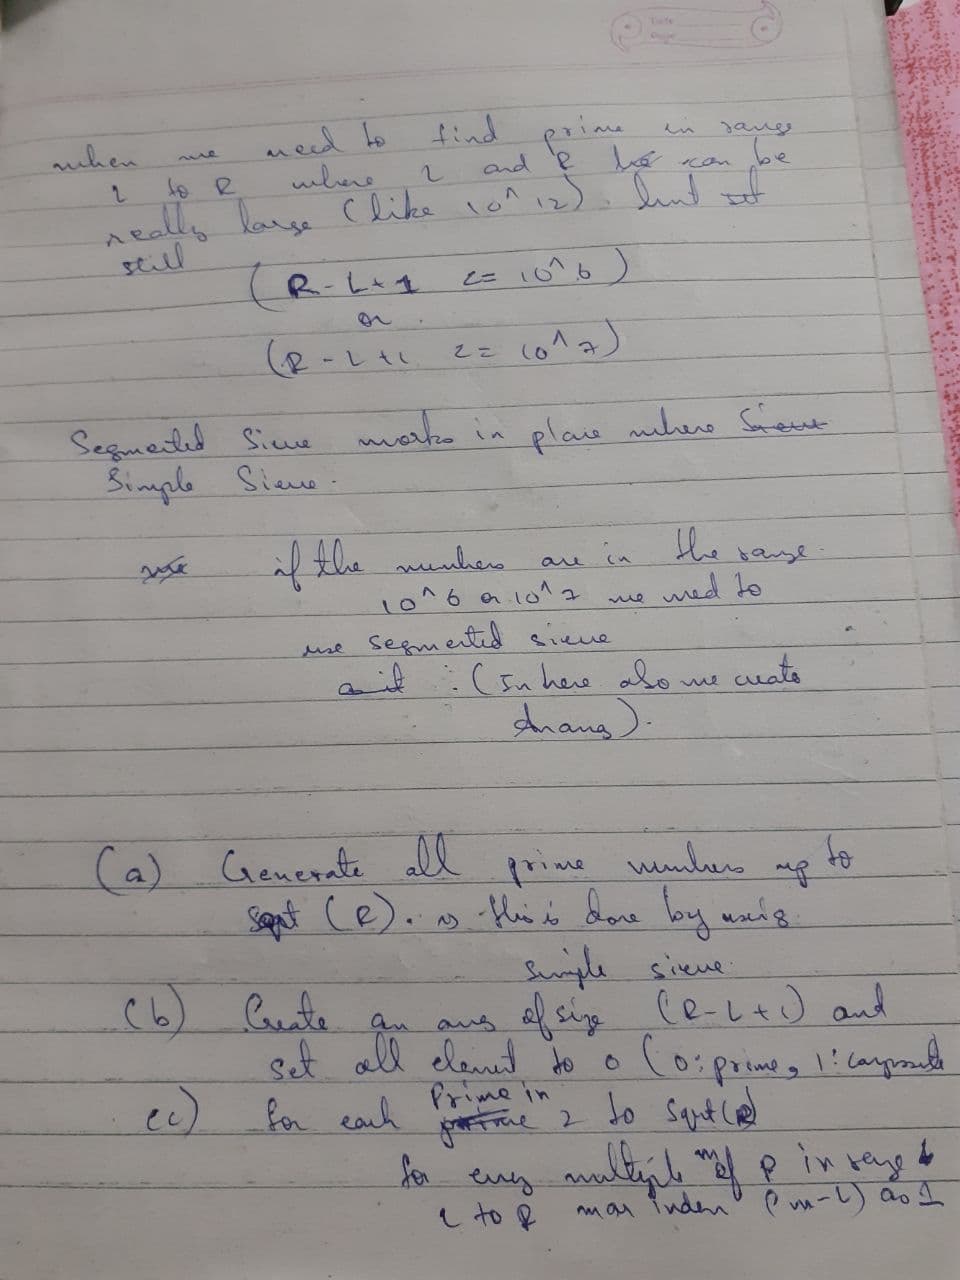 Date
when we need to find prime in range
L to R where L and R can be
really large (like 10^12). but
still
(R-L+1 <= 10^6)
or
(R-L+1 <= 10^7)
Segmented Sieve works in place where Sieve
Simple Sieve.
use if the numbers are in the range
10^6 or 10^7 we need to
use segmented sieve
(In here also we create
Array).
(a) Generate all prime numbers up to
sqrt (R). this is done by using
simple sieve
(b) Create an array of size (R-L+1) and
set all element to 0 (0: prime, 1: composite
(c) for each Prime in 2 to sqrt(R)
for every multiple m of p in range
L to R mar index (m-L) as 1